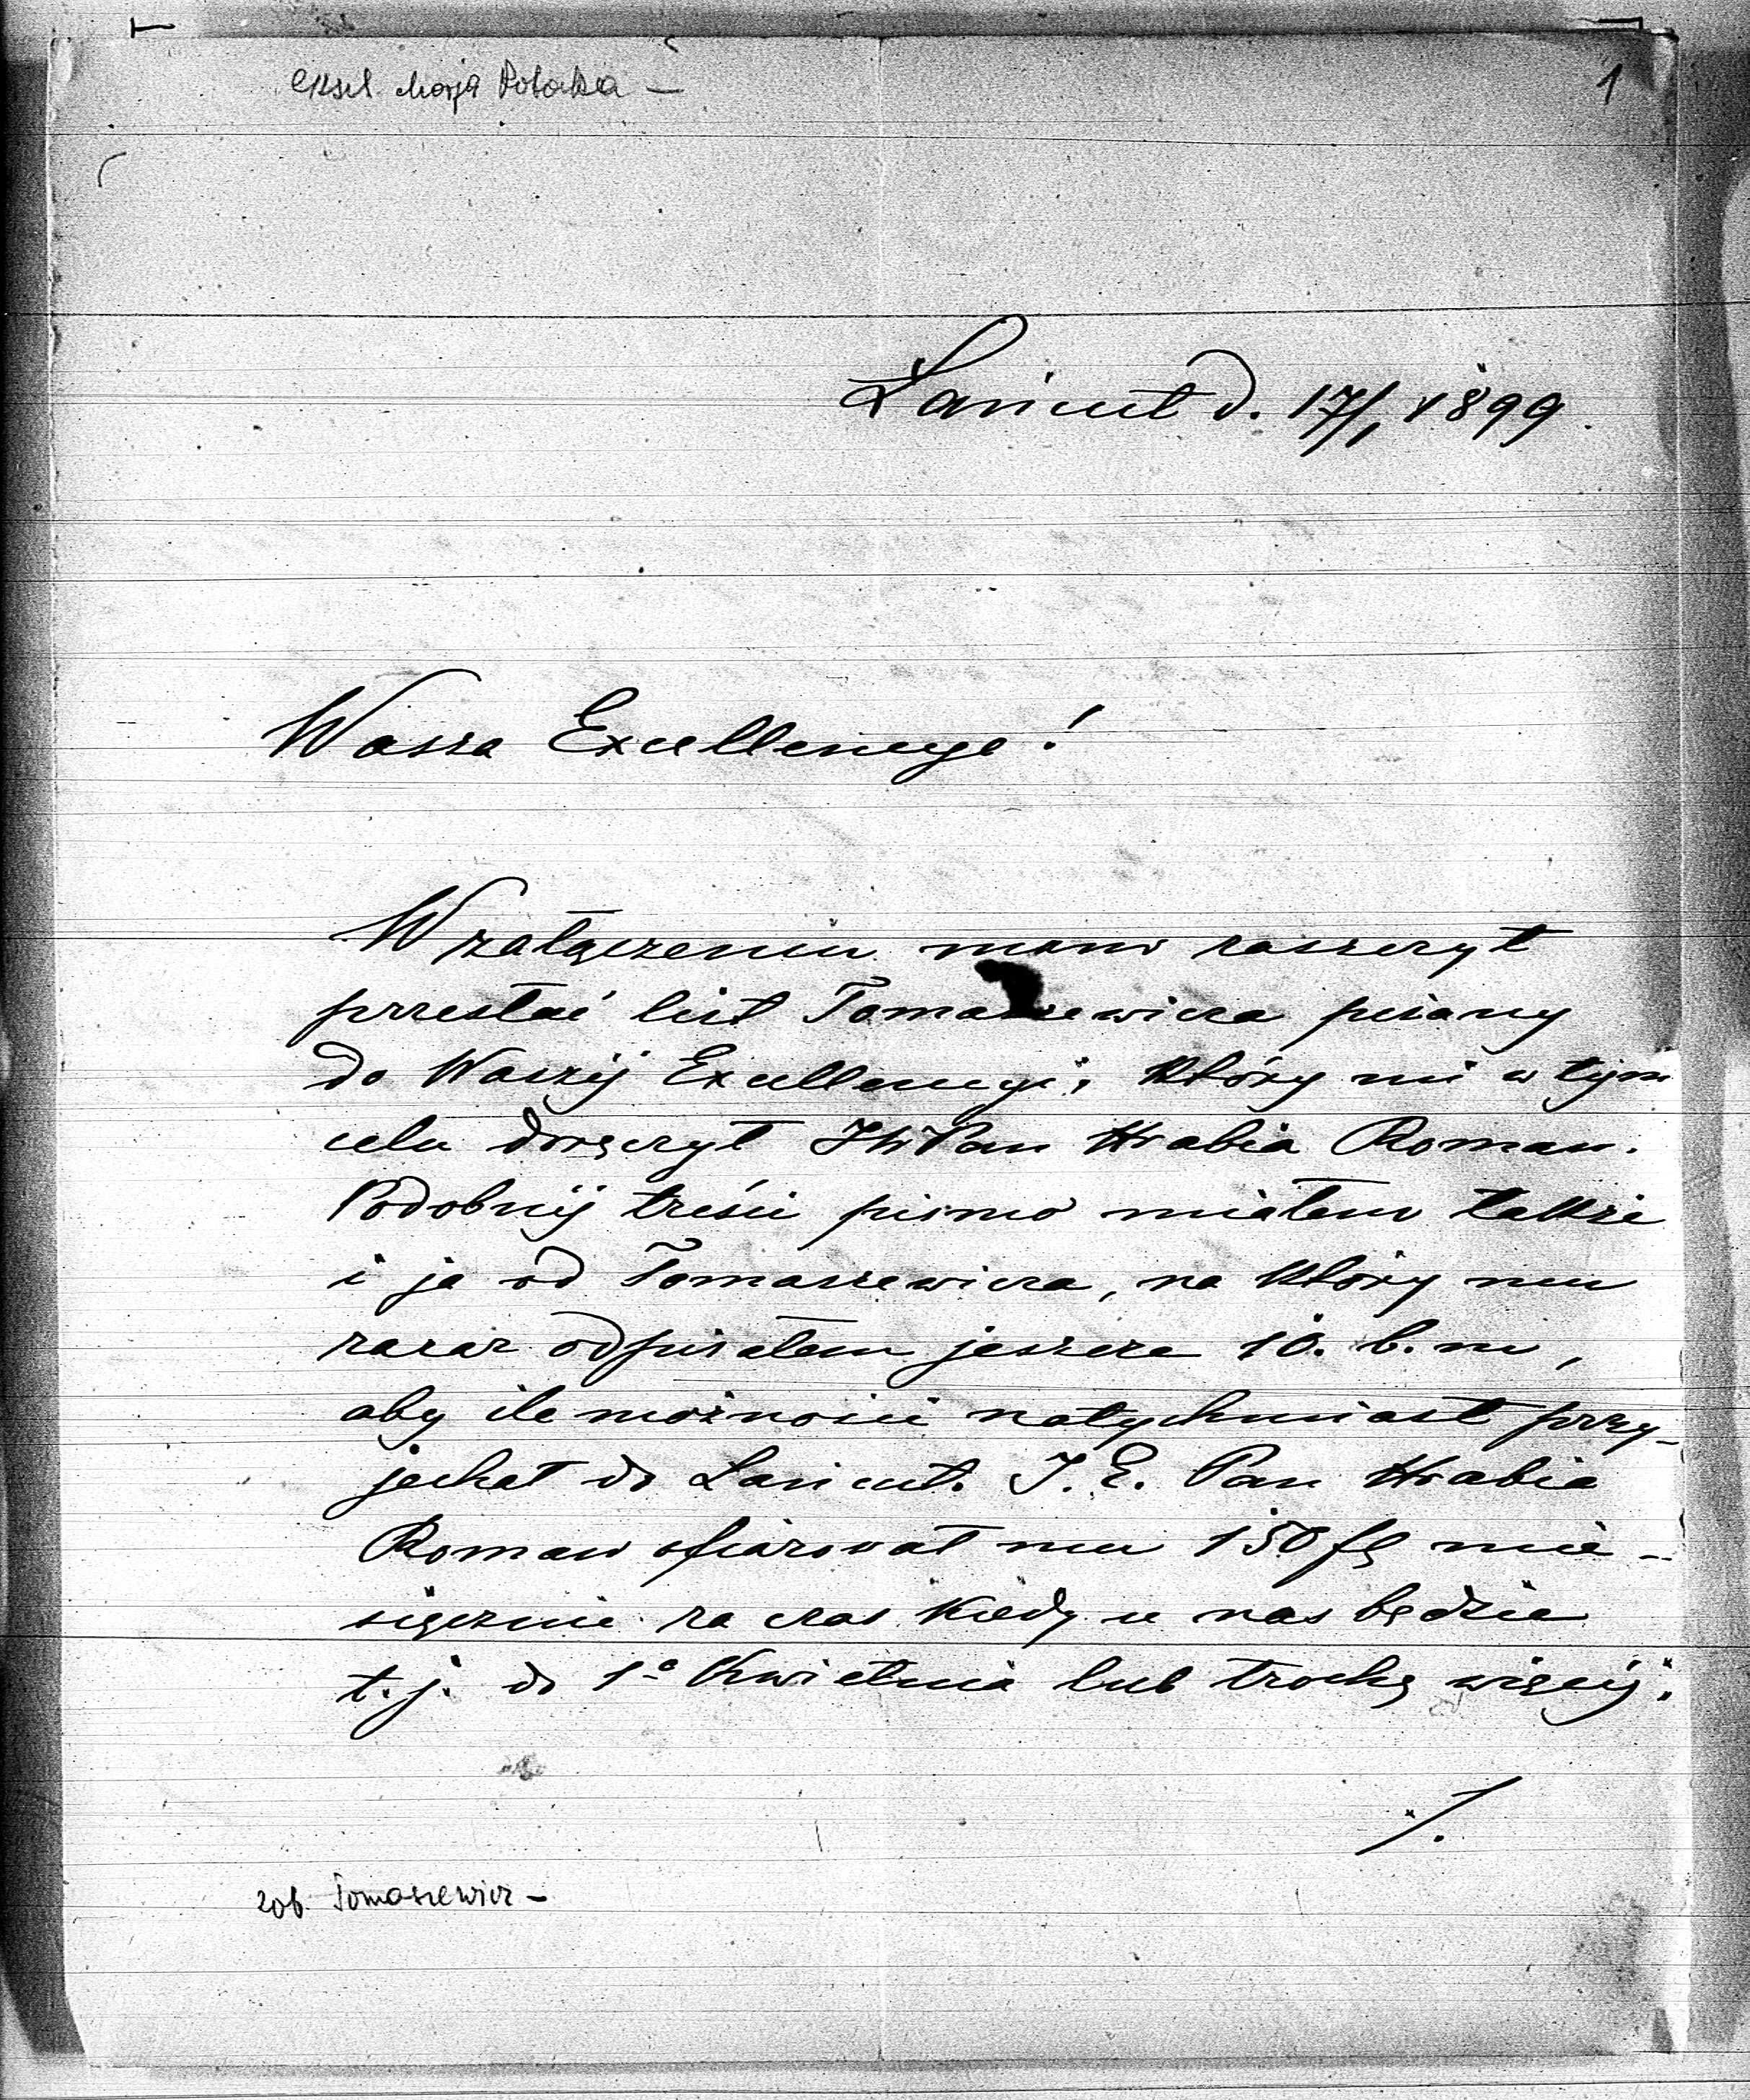 Marja Potocka —
1
Łańcut d. 17/1 1899.
Wasza Excellencyo!
W załączeniu mam zaszczyt
przesłać list Tomaszewicza pisany
do Waszéj Excellencyi, który mi w tym
celu doręczył JWPan Hrabia Roman.
Podobnéj treści pismo miałem także
i ja od Tomaszewicza, na który mu
zaraz odpisałem jeszcze 10. b. m,
aby ile możności natychmiast przy-
jechał do Łańcut. J. E. Pan Hrabia
Roman ofiarował mu 150 fl mie-
sięcznie za czas kiedy u nas będzie
t. j. do 1º Kwietnia lub trochę więcéj;
./.
zob. Tomaszewicz —